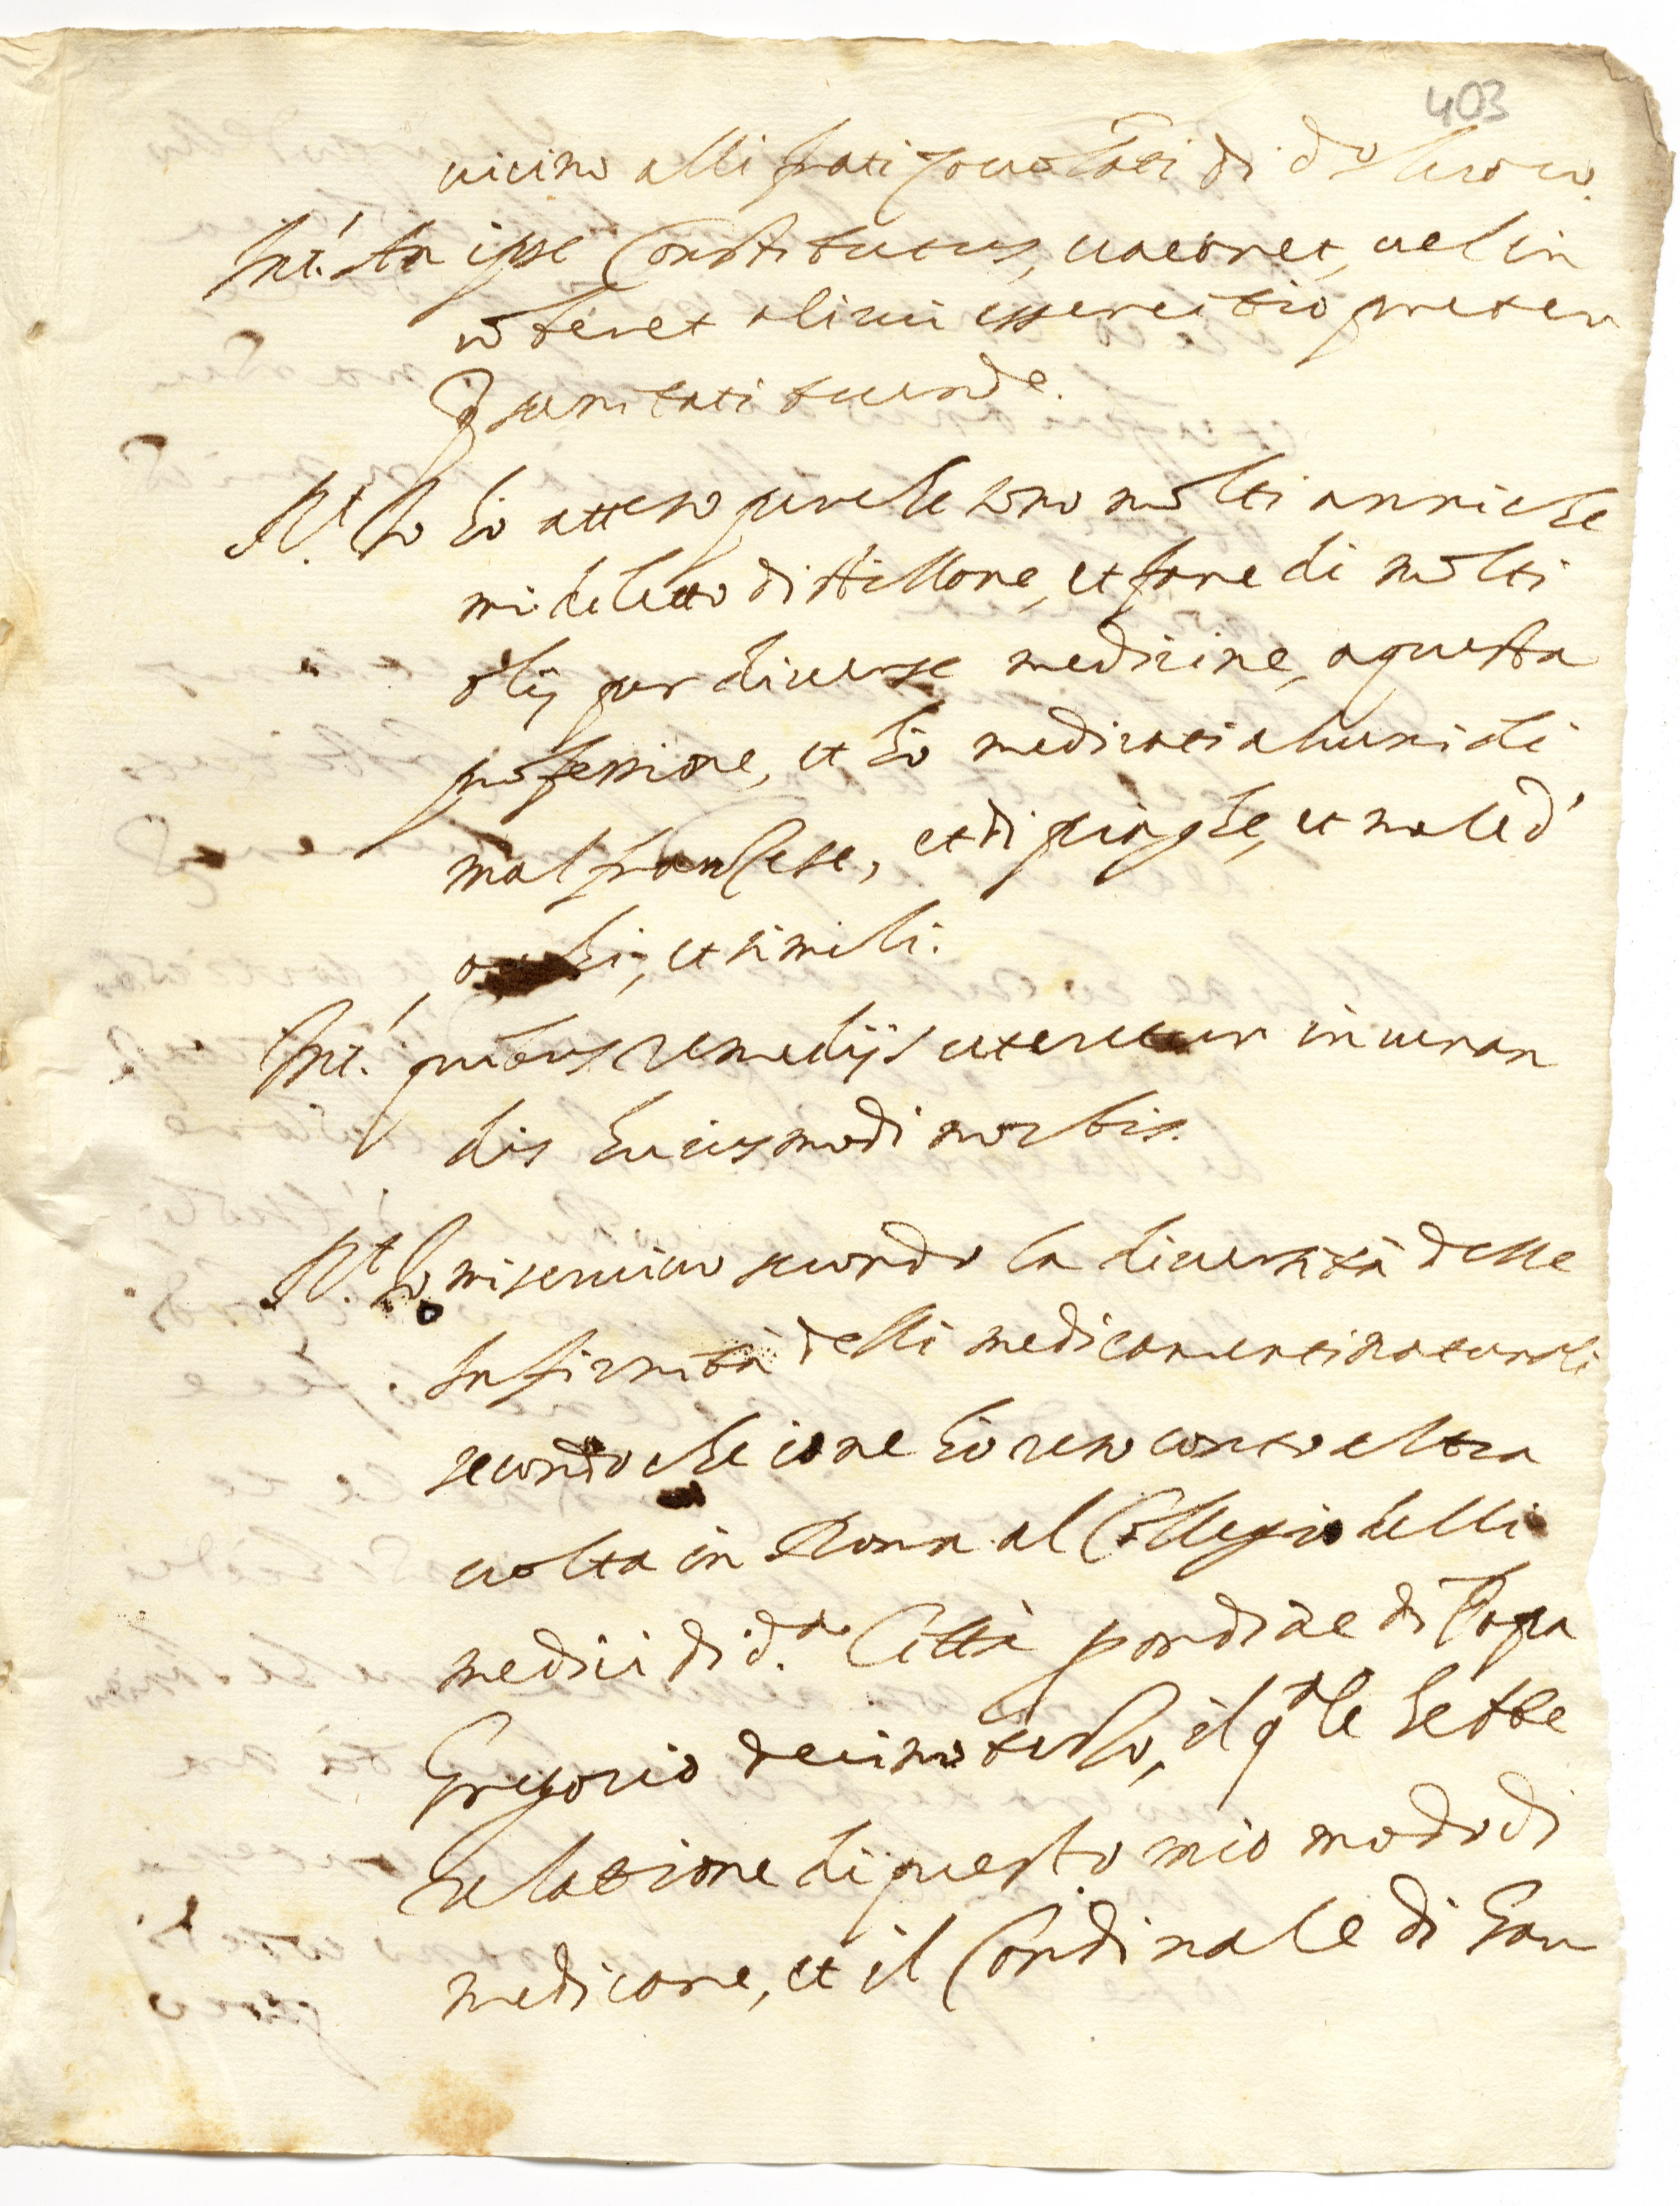 403
vicino alli frati zoccolati di d.º luoco.
Int.º An ipse Constitutus, vacaret, vel in
cūberet alicui exercitio preter
q̃ sanitati tuende.
R.t Io hò atteso perche sono molti anni che
mi deletto distillare, et fare di molti
olij per diverse medicine, a questa
professione, et hò medicati alcuni di
mal franzese, et di piaghe, et male d'
occhi, et simili.
Int.º quibus remedijs uteretur in curan
dis huiusmodi morbis.
R.t Io mi servivo secondo la diversità delle
Infirmità delli medicamenti naturali
secondo che io ne hò reso conto altra
volta in Roma al Collegio delli
medici di d.ª Città p ordine di Papa
Gregorio decimoterzo, il qle hebbe
relatione di questo mio modo di
medicare, et il Cardinale di Gam